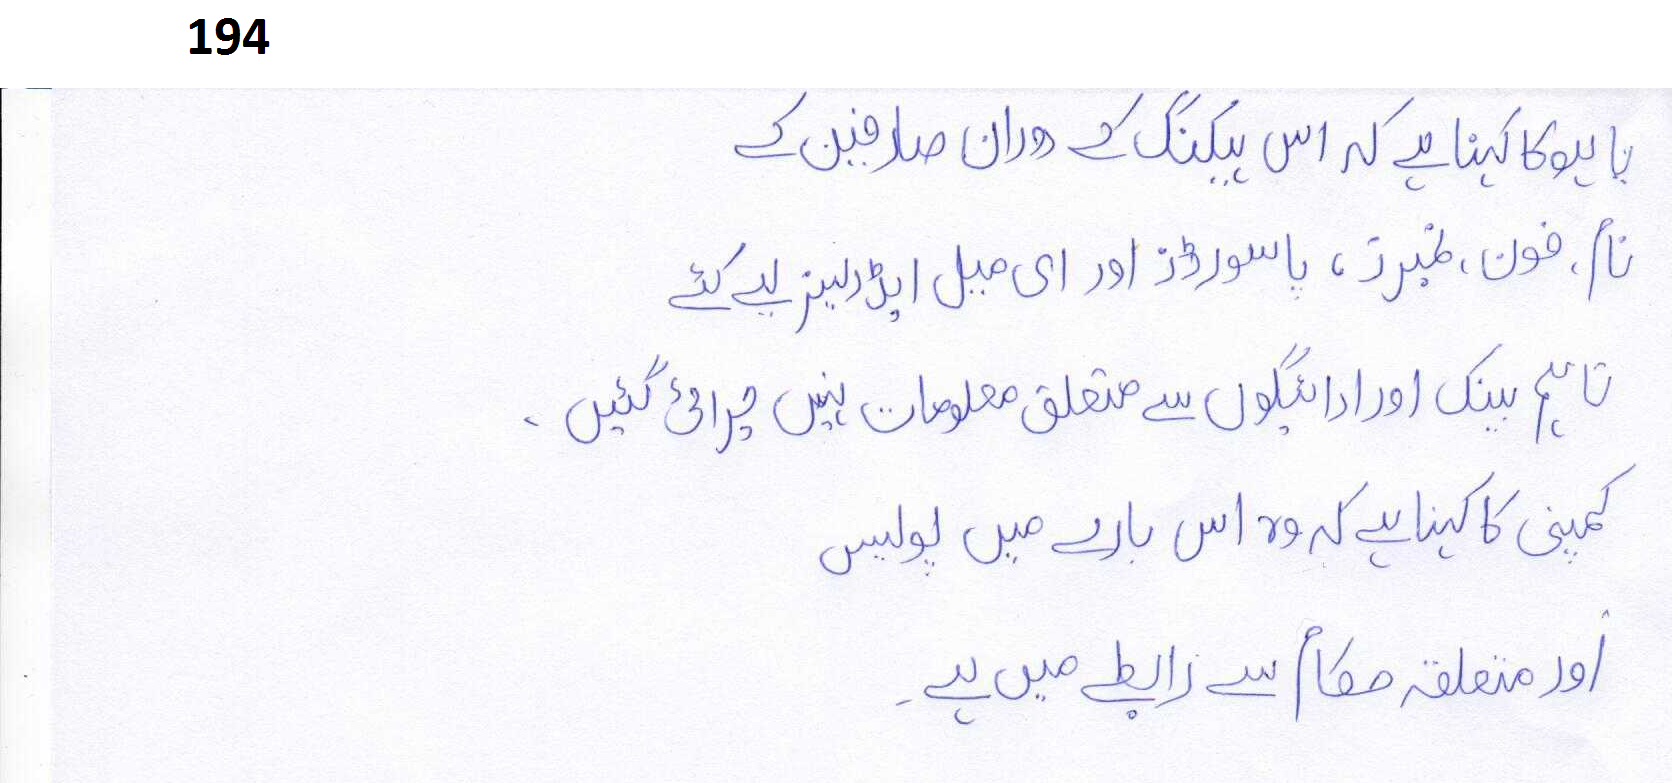 194
یاہو کا کہنا ہے کہ اس ہیکنگ کے دوران صارفین کے
نام، فون، نمبرز، پاسورڈز اور ای میل ایڈریسز لیے گئے
تاہم بینک اور ادائیگوں سے متعلق معلومات نہیں چرائی گئیں۔
کمپنی کا کہنا ہے کہ وہ اس بارے میں پولیس
اور متعلقہ حکام سے رابطے میں ہے۔